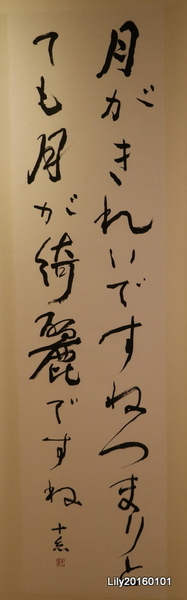 月がきれいですねつまりと
ても月が綺麗ですね
Lily20160101